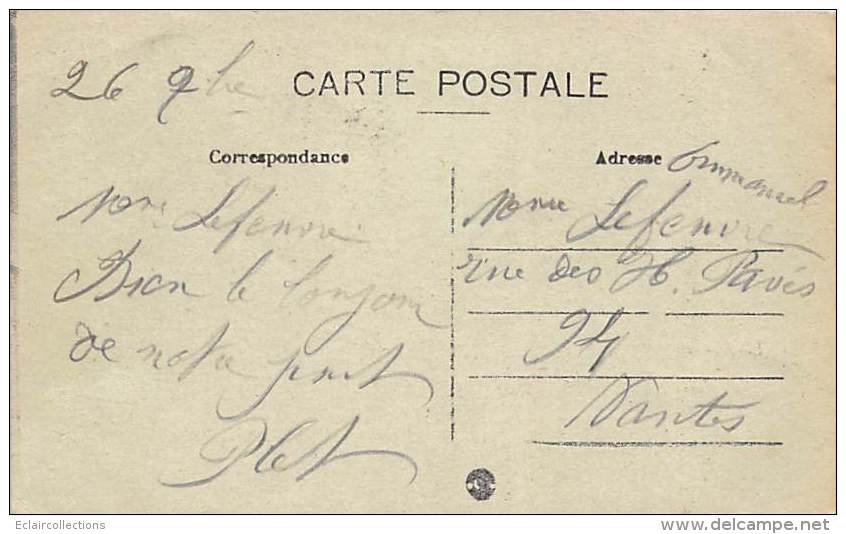 26 9bre
CARTE POSTALE
Correspondance
Adresse
Emmanuel
Mme Lefeuvre
Bien le bonjour
de notre part
Plet
Mme Lefeuvre
rue des H. Pavés
94
Nantes
Eclaircollections
www.delcampe.net